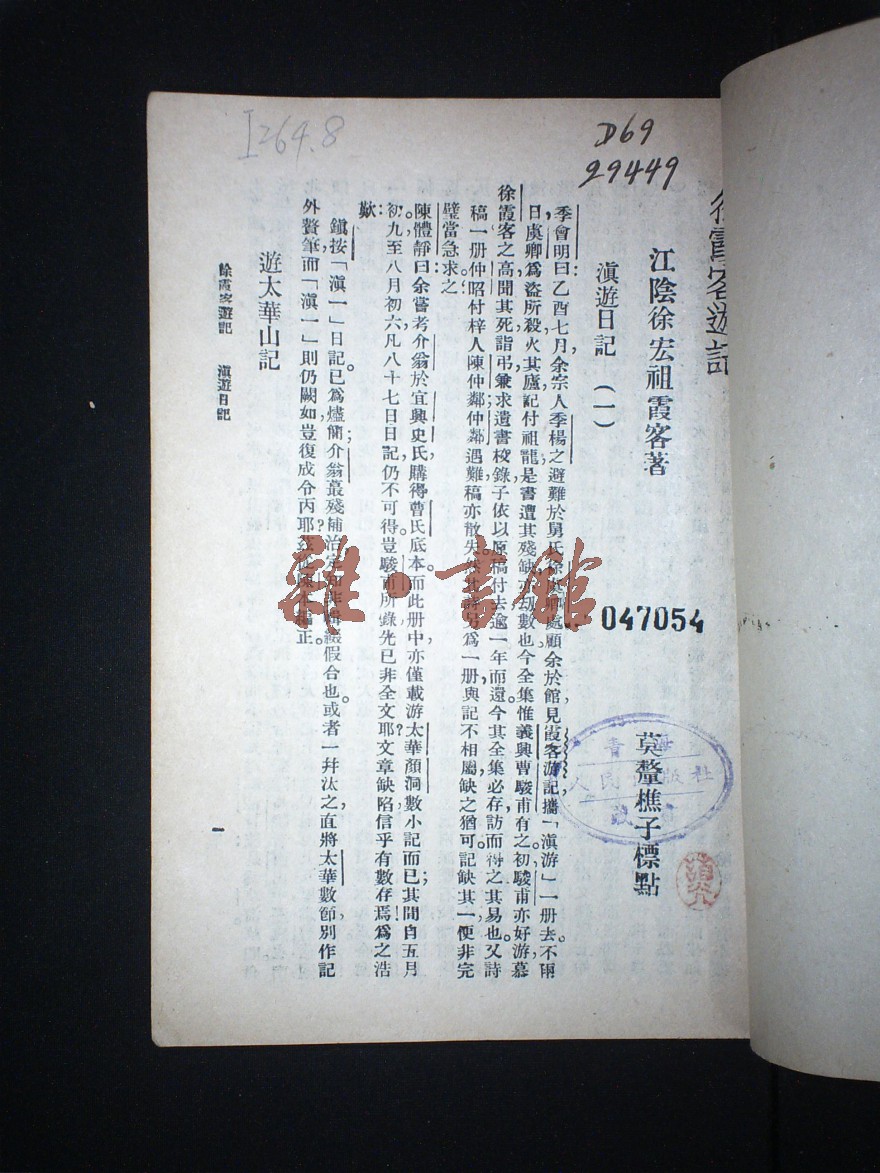 I264.8
D69
29449
徐霞客遊記
江陰徐宏祖霞客著
莫釐樵子標點
047054
滇遊日記（一）
季會明曰：乙酉七月，余宗人季楊之避難於舅氏徐虞卿處，顧余於館，見霞客游記，攜「滇游」一册去。不兩
日，虞卿爲盜所殺，火其廬，記付祖龍。是書遭其殘缺，亦劫數也。今全集惟義興曹駿甫有之。初，駿甫亦好游，慕
徐霞客之高，聞其死，詣弔，兼求遺書校錄。子依以原稿付去，逾一年而還。今其全集必存，訪而得之其易也。又詩
稿一册，仲昭付梓人陳仲鄰，仲鄰遇難，稿亦散失。然其詩另爲一册，與記不相屬，缺之猶可。記缺其一，便非完
璧，當急求之。
陳體靜曰：余嘗考介翁於宜興史氏購得曹氏底本，而此册中亦僅載游太華顏洞數小記而已；其間自五月
初九至八月初六凡八十七日日記，仍不可得。豈駿甫所錄先已非全文耶？文章缺陷，信乎有數存焉！爲之浩
歎：
鎮按：「滇一」日記，已爲燼簡；介翁蒐殘補治，定知非傅綴假合也。或者一幷汰之，直將太華數節，別作記
外贅筆，而「滇一」則仍闕如，豈復成令丙耶？茲從陳本補正。
遊太華山記
徐霞客遊記　滇遊日記
一
雜·書館
青海
人民出版社
藏書